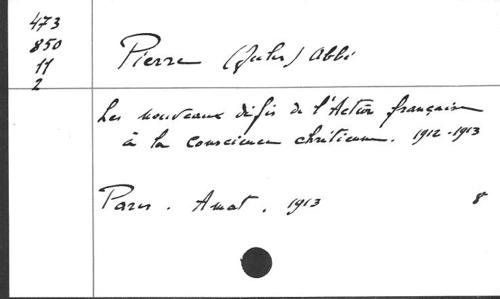 473
850
11
2
Pierre (Jules) Abbé
Les nouveaux défis de l'Action française
à la conscience chrétienne. 1912-1913
Paris. Amat. 1913 8